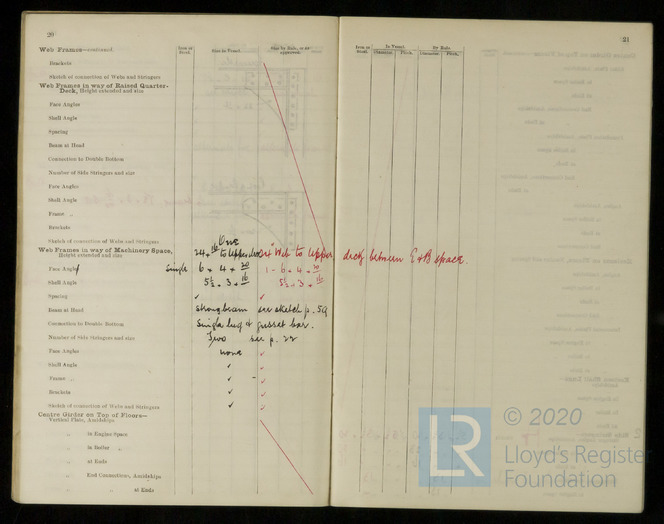 20
Iron or Steel.
Size in Vessel.
Size by Rule, or as approved.
Web Frames—continued.
Brackets
Sketch of connection of Webs and Stringers
Web Frames in way of Raised Quarter-
Deck, Height extended and size
Face Angles
Shell Angle
Spacing
Beam at Head
Connection to Double Bottom
Number of Side Stringers and size
Face Angles
Shell Angle
Frame „
Brackets
Sketch of connection of Webs and Stringers
One
Web Frames in way of Machinery Space,
Height extended and size 24 × 16 to Upper Web to Upper deck between E & B space.
Face Angle single 6 × 4 × 20 1 - 6 × 4 × 20
Shell Angle 5½ × 3 × 16 5½ × 3 × 16
Spacing ✓ ✓
Beam at Head strongbeam see sketch p. 59
Connection to Double Bottom Single lug & gusset bar.
Number of Side Stringers and size Two see p. 22
Face Angles none ✓
Shell Angle ✓ ✓
Frame „ ✓ - ✓
Brackets ✓ ✓
Sketch of connection of Webs and Stringers ✓ ✓
Centre Girder on Top of Floors—
Vertical Plate, Amidships
„ in Engine Space
„ in Boiler „
„ at Ends
„ End Connections, Amidships
„ „ at Ends
21
Iron or Steel.
In Vessel.
By Rule
Diameter. Pitch. Diameter. Pitch.
© 2020
LR
Lloyd's Register
Foundation